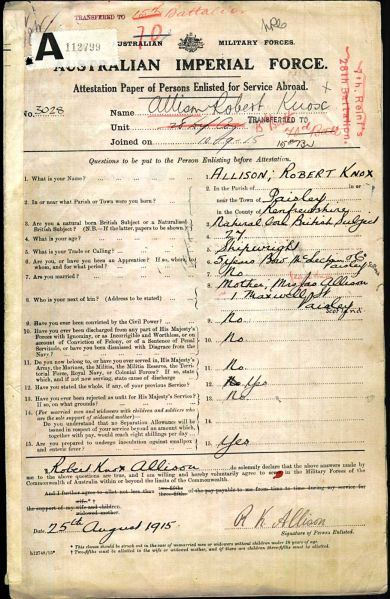 TRANSFERRED TO 15th Battalion
A 112799
AUSTRALIAN MILITARY FORCES.
AUSTRALIAN IMPERIAL FORCE.
Attestation Paper of Persons Enlisted for Service Abroad.
No. 3028 Name Allison Robert Knox
Unit TRANSFERRED TO
Joined on
7th Reinf'ts
28th Battalion
Questions to be put to the Person Enlisting before Attestation.
1. What is your Name? 1. ALLISON, ROBERT KNOX
2. In or near what Parish or Town were you born? 2. In the Parish of
near the Town of Paisley
in the County of Renfrewshire
3. Are you a natural born British Subject or a Naturalised British Subject? (N.B.—If the latter, papers to be shown.) 3. Natural born British Subject
4. What is your age? 4. 27
5. What is your Trade or Calling? 5. Shipwright
6. Are you, or have you been an Apprentice? If so, where, to whom, and for what period? 6. 5 years Bow McLachlan & Co Paisley
7. Are you married? 7. No
8. Who is your next of kin? (Address to be stated) 8. Mother, Mrs Jas Allison
1. Maxwell St
Paisley
Scotland
9. Have you ever been convicted by the Civil Power? 9. No
10. Have you ever been discharged from any part of His Majesty's Forces with Ignominy, or as Incorrigible and Worthless, or on account of Conviction of Felony, or of a Sentence of Penal Servitude, or have you been dismissed with Disgrace from the Navy? 10. No
11. Do you now belong to, or have you ever served in, His Majesty's Army, the Marines, the Militia, the Militia Reserve, the Territorial Force, Royal Navy, or Colonial Forces? If so, state which, and if not now serving, state cause of discharge 11. No
12. Have you stated the whole, if any, of your previous Service? 12. Yes
13. Have you ever been rejected as unfit for His Majesty's Service? If so, on what grounds? 13. No
14. (For married men and widowers with children and soldiers who are the sole support of widowed mother)—
Do you understand that no Separation Allowance will be issued in respect of your service beyond an amount which together with pay, would reach eight shillings per day 14.
15. Are you prepared to undergo inoculation against smallpox and enteric fever? 15. Yes
I, Robert Knox Allison do solemnely declare that the above answers made by me to the above questions are true, and I am willing and hereby voluntarily agree to serve in the Military Forces of the Commonwealth of Australia within or beyond the limits of the Commonwealth.
And I further agree to allot not less than of the pay payable to me from time to time during my service for the support of my wife and children.
widowed mother.
Date 25th August 1915. R K Allison
Signature of Person Enlisted.
* This clause should be struck out in the case of unmarried men or widowers without children under 18 years of age.
† Two-fifths must be allotted to the wife or widowed mother, and if there are children three-fifths must be allotted.